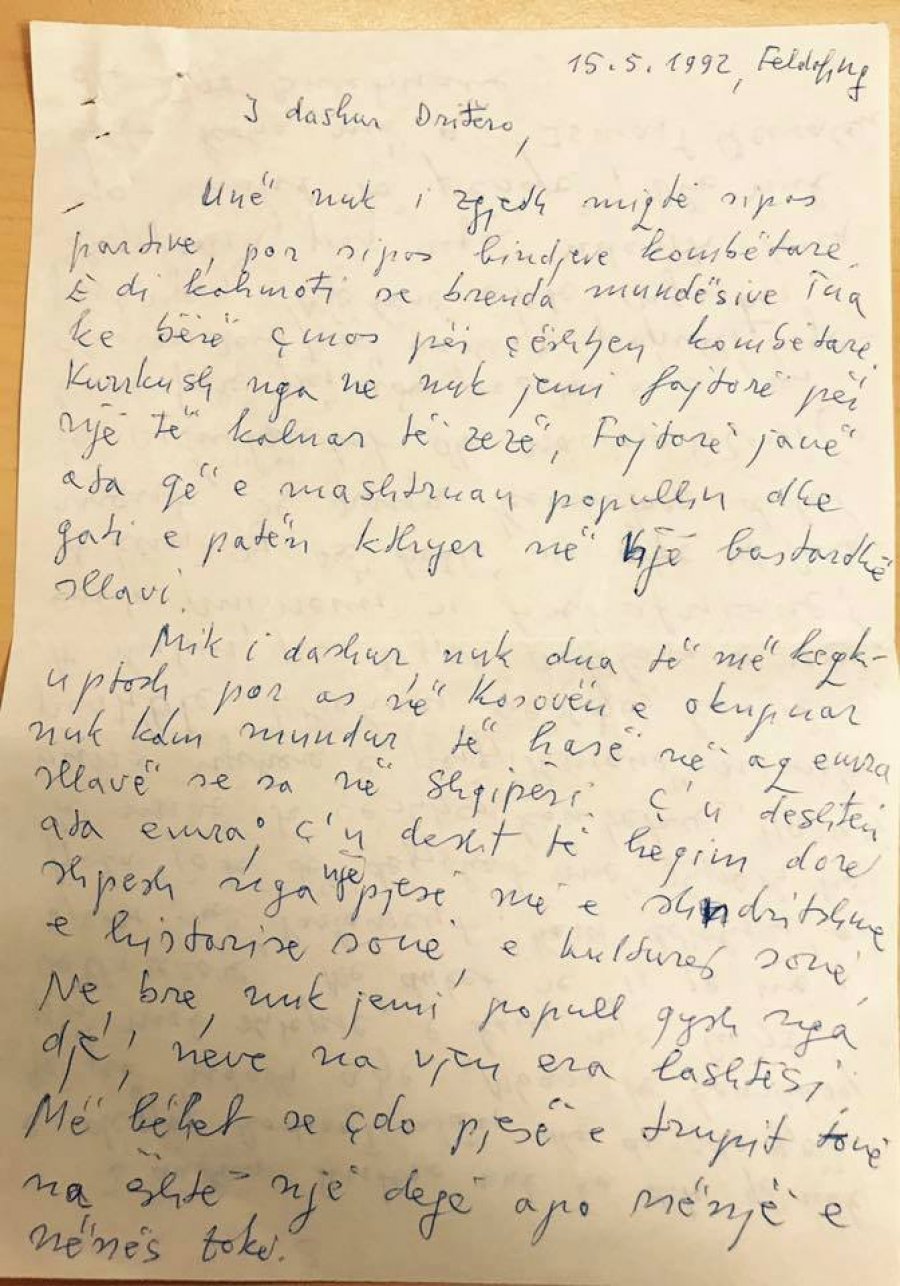 15.5.1992, Feldafing
I dashur Dritëro,
Unë nuk i zgjedh miqtë sipas
partive, por sipas bindjeve kombëtare.
E di kahmoti se brenda mundësive Tua
ke bërë çmos për çështjen kombëtare.
Kurrkush nga ne nuk jemi fajtorë për
një të kaluar të zezë, Fajtorë janë
ata që e mashtruan popullin dhe
gati e patën kthyer në një bastardhë
sllavi.
Mik i dashur, nuk dua të më keqk-
uptosh por as në Kosovën e okupuar
nuk kam mundur të hasë në aq emra
sllavë se sa në Shqipëri. Ç'u deshtën
ata emra, ç'u desht të heqim dorë
shpesh nga një pjesë më e shndritshme
e historisë sonë, e kulturës sonë,
Ne, bre, nuk jemi popull qysh nga
djé, neve na vjen era lashtësi.
Më bëhet se çdo pjesë e trupit tonë
na është një degë apo rrënjë e
nënës tokë.